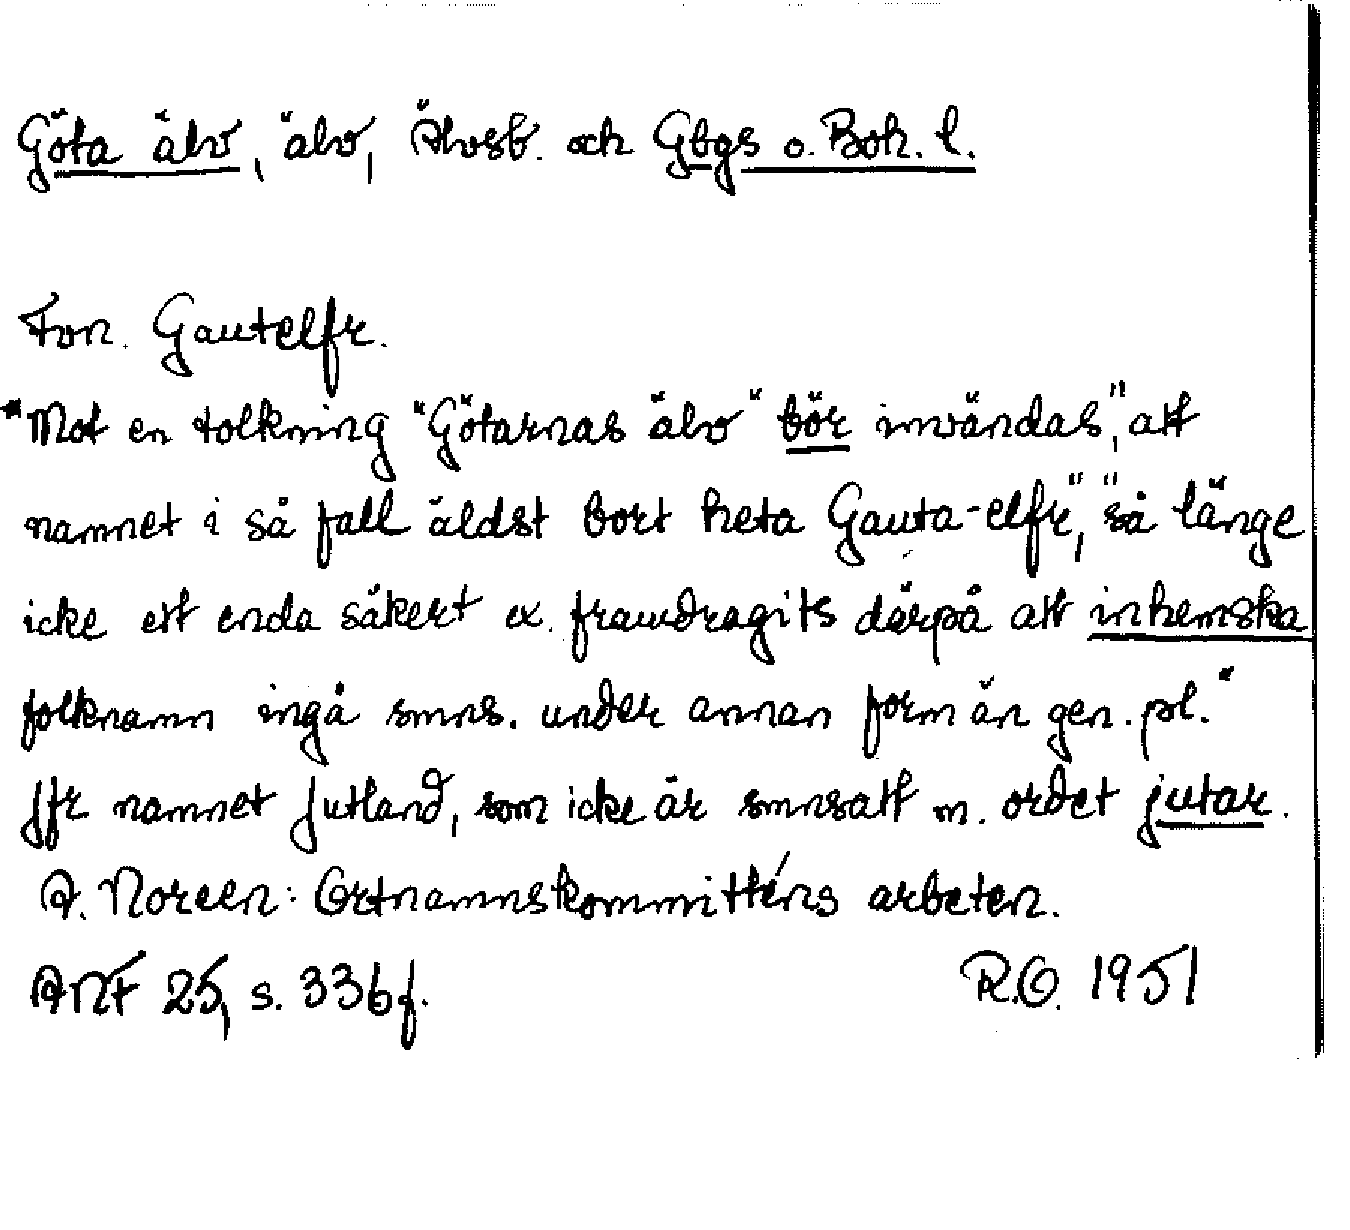 Göta älv, älv, Älvsb. och Gbgs o. Boh. l.
Fvn. Gautelfr.
"Mot en tolkning "Götarnas älv" bör invändas", att
namnet i så fall äldst bort heta Gauta-elfr", "så länge
icke ett enda säkert ex. framdragits därpå att inhemska
folknamn ingå smns. under annan form än gen. pl."
Jfr namnet Jutland, som icke är smnsatt m. ordet jutar.
A. Noreen: Ortnamnskommitténs arbeten.
ANF 25, s. 336f. R.O. 1951